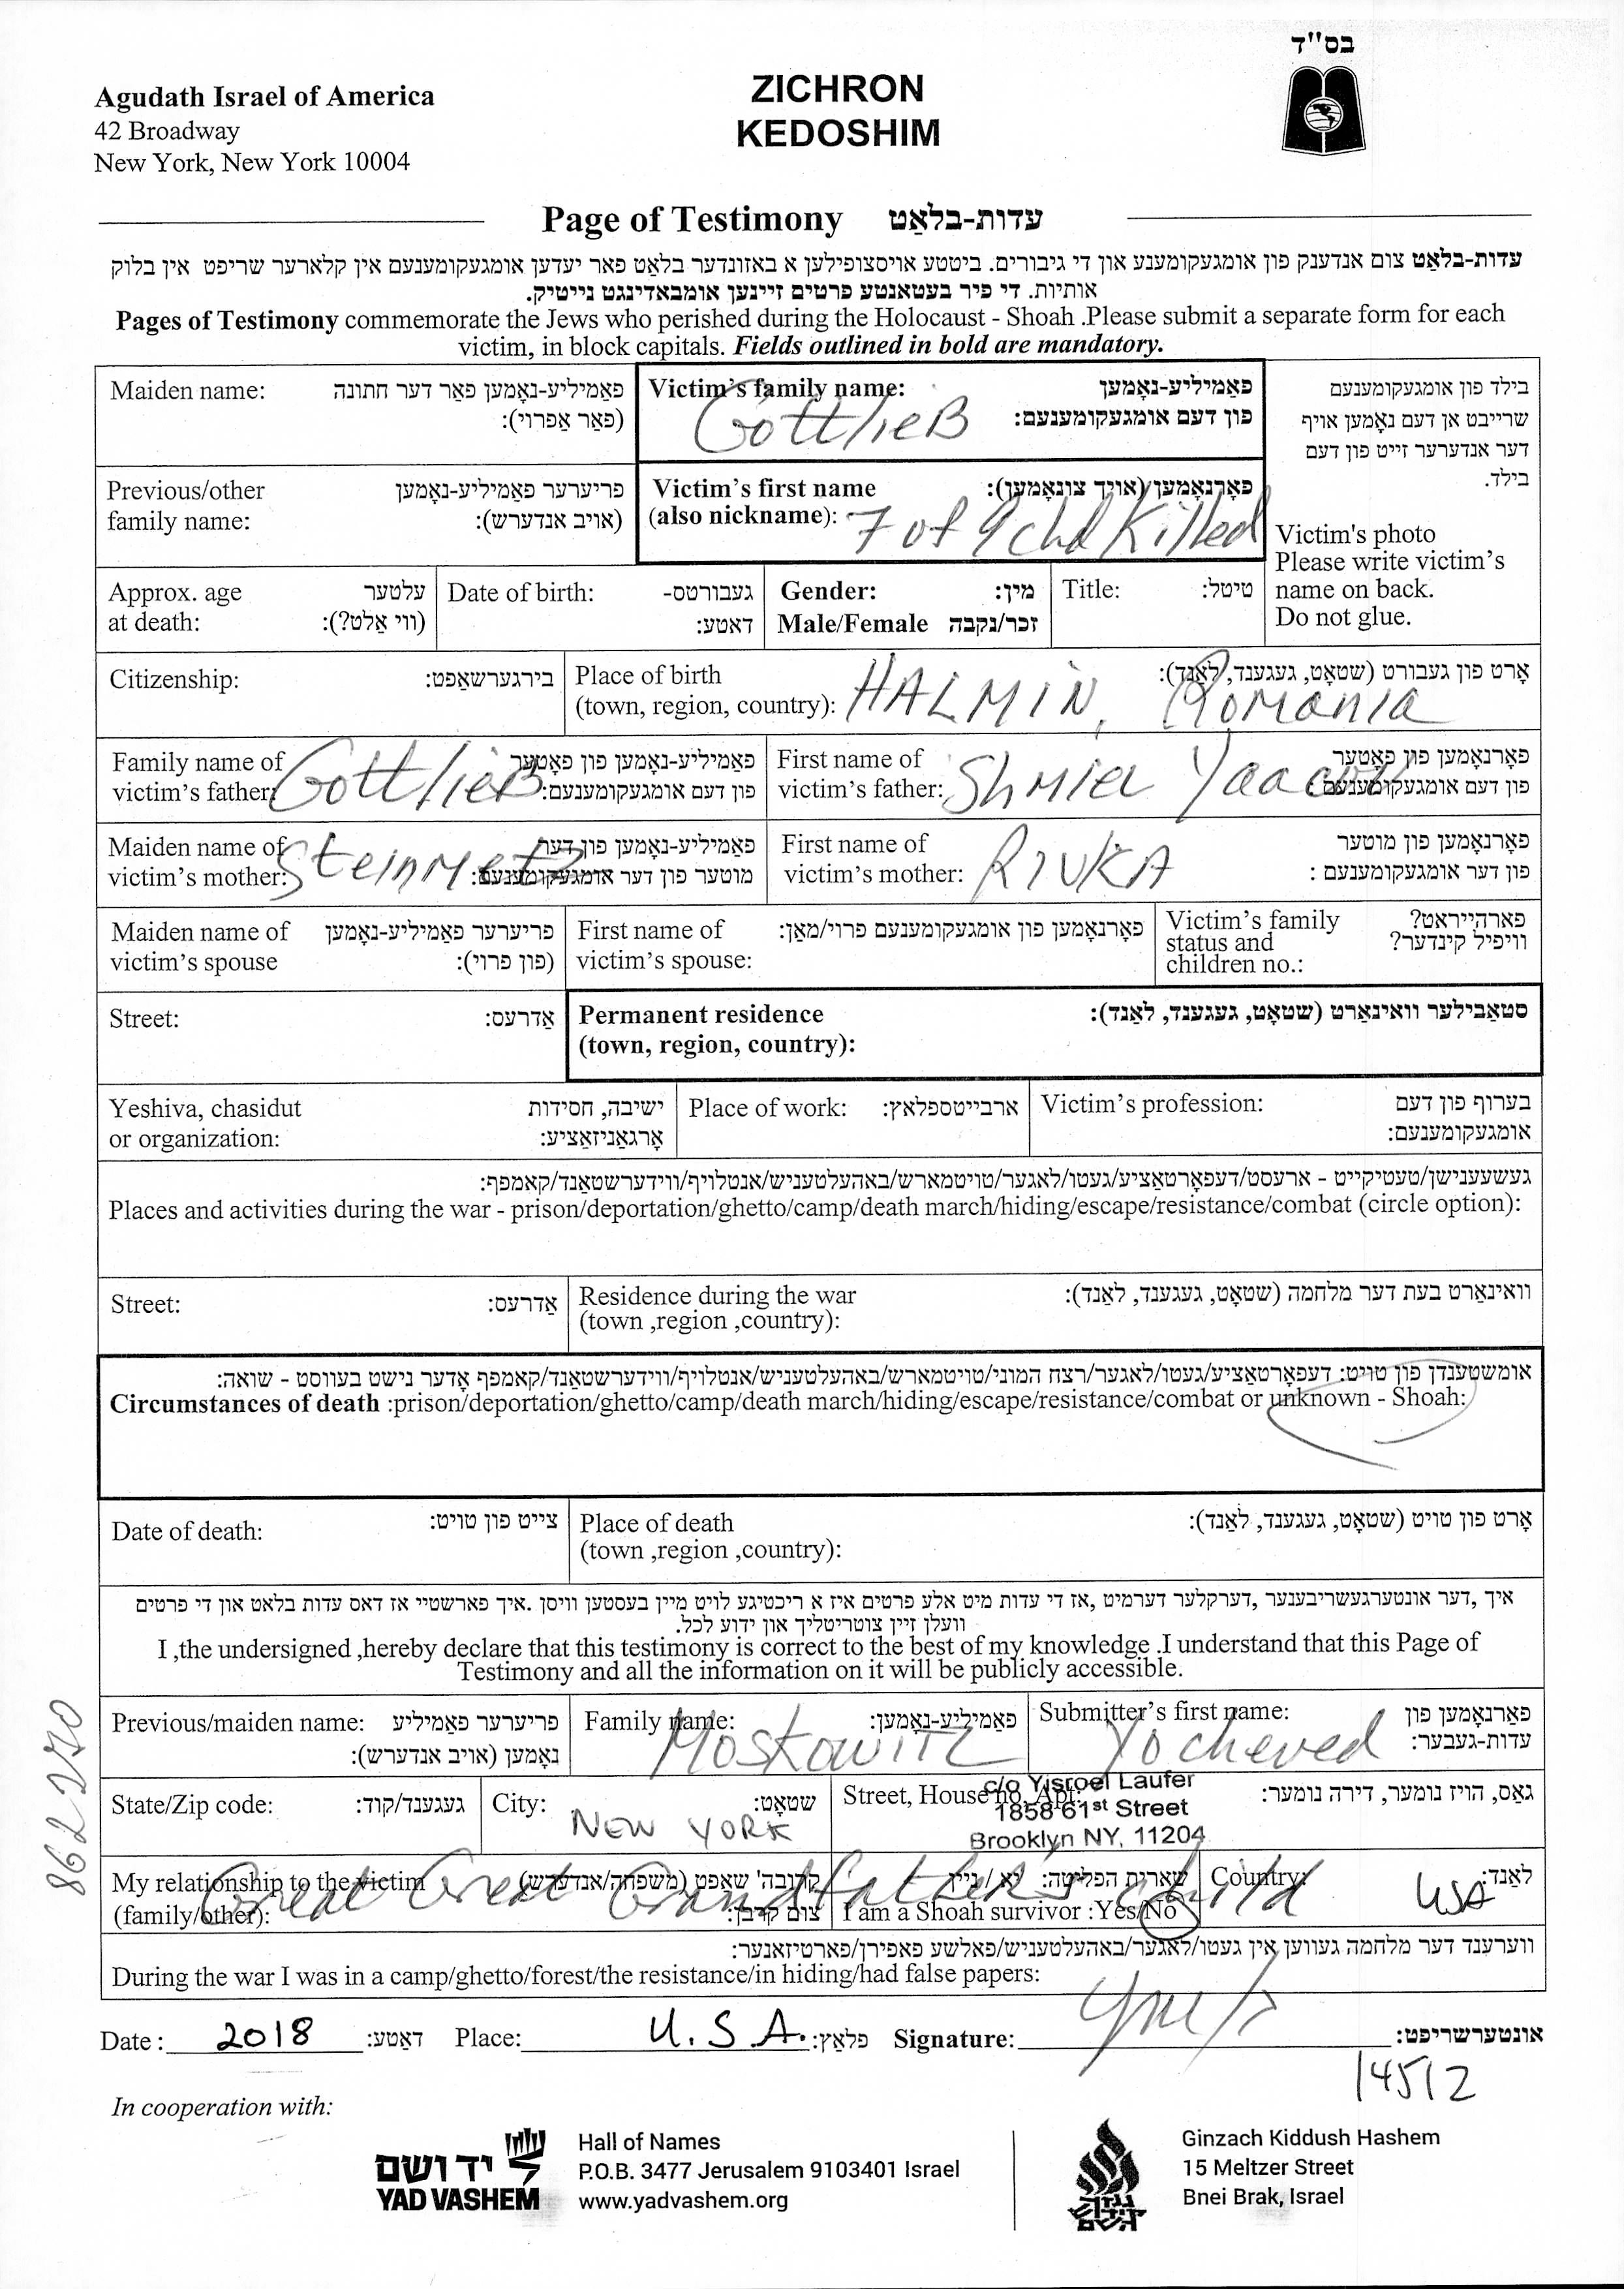 בס"ד
Agudath Israel of America
42 Broadway
New York, New York 10004
ZICHRON
KEDOSHIM
Page of Testimony עדות-בלאַט
עדות-בלאַט צום אנדענק פון אומגעקומענע און די גיבורים. ביטטע אויסצופילען א באזונדער בלאט פאר יעדען אומגעקומענעם אין קלארער שריפט אין בלוק
אותיות. די פיר בעטאנטע פרטים זיינען אומבאדינגט נייטיק.
Pages of Testimony commemorate the Jews who perished during the Holocaust - Shoah .Please submit a separate form for each
victim, in block capitals. Fields outlined in bold are mandatory.
Maiden name: פאַמיליע-נאָמען פאַר דער חתונה
(פאַר אַפרוי):
Victim's family name: פאַמיליע-נאָמען
פון דעם אומגעקומענעם:
Gottlieb
בילד פון אומגעקומענעם
שרייבט אן דעם נאָמען אויף
דער אנדערער זייט פון דעם
בילד.
Victim's photo
Please write victim's
name on back.
Do not glue.
Previous/other פריערער פאַמיליע-נאָמען
family name: (אויב אנדערש):
Victim's first name פאָרנאָמען (אויך צונאָמען):
(also nickname): 7 of 9 chd Killed
Approx. age עלטער
at death: (ווי אַלט?):
Date of birth: געבורטס-
דאטע:
Gender: מין:
Male/Female זכר/נקבה
Title: טיטל:
Citizenship: בירגערשאַפט:
Place of birth אָרט פון געבורט (שטאָט, געגענד, לאַנד):
(town, region, country): HALMIN, Romania
Family name of פאַמיליע-נאָמען פון פאָטער
victim's father: פון דעם אומגעקומענעם:
Gottlieb
First name of פאָרנאָמען פון פאָטער
victim's father: פון דעם אומגעקומענעם:
Shmiel Yaacov
Maiden name of פאַמיליע-נאָמען פון דער
victim's mother: מוטער פון דער אומגעקומענעם:
Steinmetz
First name of פאָרנאָמען פון מוטער
victim's mother: פון דער אומגעקומענעם :
RIVKA
Maiden name of פריערער פאַמיליע-נאָמען
victim's spouse (פון פרוי):
First name of פאָרנאָמען פון אומגעקומענעם פרוי/מאַן:
victim's spouse:
Victim's family פארהייראט?
status and וויפיל קינדער?
children no.:
Street: אַדרעס:
Permanent residence סטאַבילער וואינאָרט (שטאָט, געגענד, לאַנד):
(town, region, country):
Yeshiva, chasidut ישיבה, חסידות
or organization: אָרגאַניזאַציע:
Place of work: ארבייטספלאַץ:
Victim's profession: בערוף פון דעם
אומגעקומענעם:
געשעענישן/טעטיקייט - ארעסט/דעפאָרטאַציע/געטו/לאגער/טויטמארש/באהעלטעניש/אנטלויף/ווידערשטאַנד/קאמפף:
Places and activities during the war - prison/deportation/ghetto/camp/death march/hiding/escape/resistance/combat (circle option):
Street: אַדרעס:
Residence during the war וואינאָרט בעת דער מלחמה (שטאָט, געגענד, לאַנד):
(town ,region ,country):
אומשטענדן פון טויט: דעפאָרטאַציע/געטו/לאגער/רצח המוני/טויטמארש/באהעלטעניש/אנטלויף/ווידערשטאַנד/קאמפף אָדער נישט בעווסט - שואה:
Circumstances of death :prison/deportation/ghetto/camp/death march/hiding/escape/resistance/combat or unknown - Shoah:
Date of death: צייט פון טויט:
Place of death אָרט פון טויט (שטאָט, געגענד, לאַנד):
(town ,region ,country):
איך ,דער אונטערגעשריבענער ,דערקלער דערמיט ,אז די עדות מיט אלע פרטים איז א ריכטיגע לויט מיין בעסטען וויסן .איך פארשטיי אז דאס עדות בלאט און די פרטים
וועלן זיין צוטריטליך און ידוע לכל.
I ,the undersigned ,hereby declare that this testimony is correct to the best of my knowledge .I understand that this Page of
Testimony and all the information on it will be publicly accessible.
Previous/maiden name: פריערער פאַמיליע
נאָמען (אויב אנדערש):
Family name: פאַמיליע-נאָמען:
Moskowitz
Submitter's first name: פאָרנאָמען פון
עדות-געבער:
Yocheved
State/Zip code: געגענד/קוד:
City: שטאָט:
NEW YORK
Street, House no, Apt: גאַס, הויז נומער, דירה נומער:
c/o Yisroel Laufer
1858 61st Street
Brooklyn NY, 11204
My relationship to the victim קרובה'שאַפט (משפחה/אנדערש)
(family/other): צום קרבן:
Great Great Grandfather's child
שארית הפליטה: יא / ניין
I am a Shoah survivor :Yes/No
Country: לאַנד:
USA
ווערענד דער מלחמה געווען אין געטו/לאגער/באהעלטעניש/פאלשע פאפירן/פארטיזאנער:
During the war I was in a camp/ghetto/forest/the resistance/in hiding/had false papers:
Date : 2018 דאַטע: Place: U.S.A. פלאַץ: Signature: אונטערשריפט:
14512
8622570
In cooperation with:
יד ושם
YAD VASHEM
Hall of Names
P.O.B. 3477 Jerusalem 9103401 Israel
www.yadvashem.org
גנזך
קידוש
השם
Ginzach Kiddush Hashem
15 Meltzer Street
Bnei Brak, Israel